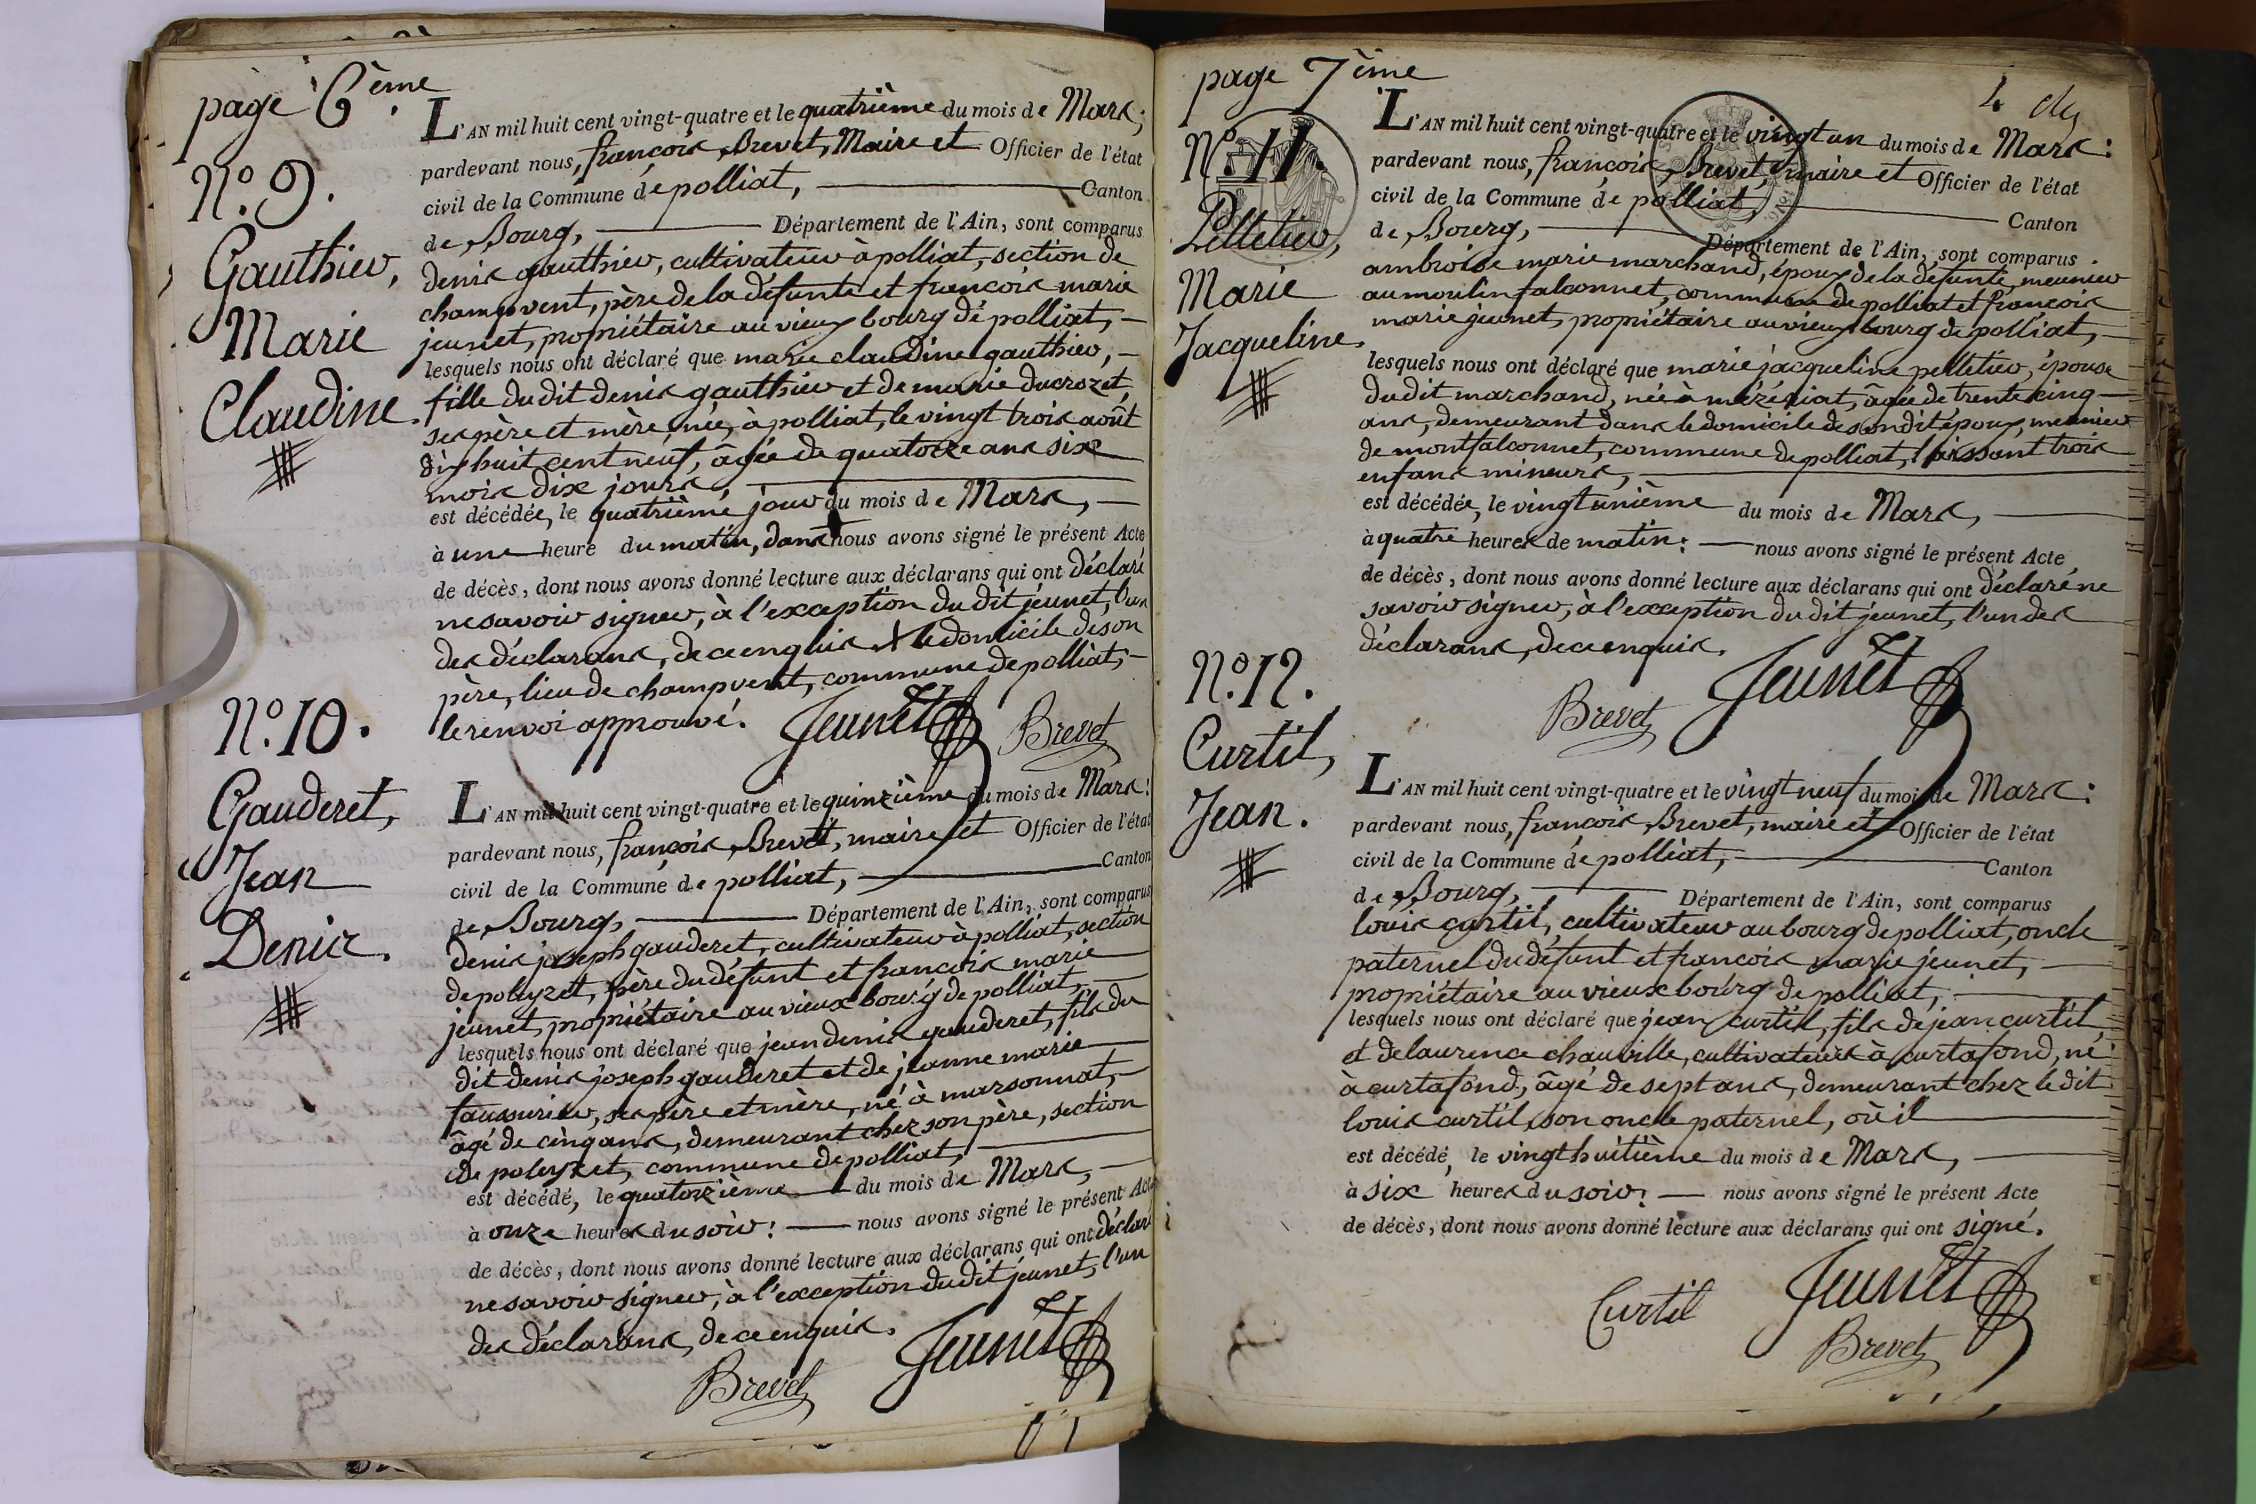 page 6ème
N.º 9.
Gauthier,
Marie
Claudine.
L'AN mil huit cent vingt-quatre et le quatrième du mois de Mars;
pardevant nous, françois Brevet, Maire et Officier de l'état
civil de la Commune de polliat, Canton
de Bourg, Département de l'Ain, sont comparus
denis gauthier, cultivateur à polliat, section de
champvent, père de la défunte et françois marie
jeunet, propriétaire au vieux bourg de polliat,
lesquels nous ont déclaré que marie claudine gauthier,
fille du dit denis gauthier et de marie ducrozet,
ses père et mère, née à polliat, le vingt trois août
dix huit cent neuf, âgée de quatorze ans six
mois dix jours,
est décédée, le quatrième jour du mois de Mars,
à une heure du matin, dans nous avons signé le présent Acte
de décès, dont nous avons donné lecture aux déclarans qui ont déclaré
ne savoir signer, à l'exception du dit jeunet, l'un
des déclarans, de ce enquis X le domicile de son
père, lieu de champvent, commune de polliat,
le renvoi approuvé. Jeunet Brevet
N.º 10.
Gauderet,
Jean
Denis.
L'AN mil huit cent vingt-quatre et le quinzième du mois de Mars:
pardevant nous, françois Brevet, maire et Officier de l'état
civil de la Commune de polliat, Canton
de Bourg, Département de l'Ain, sont comparus
denis joseph gauderet, cultivateur à polliat, section
de poleyzet, père du défunt et françois marie
jeunet, propriétaire au vieux bourg de polliat,
lesquels nous ont déclaré que jean denis gauderet, fils du
dit denis joseph gauderet et de jeanne marie
ses père et mère, né à marsonnat,
âgé de cinq ans, demeurant chez son père, section
de poleyzet, commune de polliat,
est décédé, le quatorzième du mois de Mars,
à onze heures du soir: nous avons signé le présent Acte
de décès, dont nous avons donné lecture aux déclarans qui ont déclaré
ne savoir signer, à l'exception du dit jeunet, l'un
des déclarans, de ce enquis. Jeunet
Brevet
page 7ème
N.º 11.
Pelletier,
Marie
Jacqueline.
L'AN mil huit cent vingt-quatre et le vingt un du mois de Mars:
pardevant nous, françois Brevet, maire et Officier de l'état
civil de la Commune de polliat, Canton
de Bourg, Département de l'Ain, sont comparus
ambroise marie marchand, époux de la défunte, meunier
au moulin falconnet, commune de polliat et françois
marie jeunet, propriétaire au vieux bourg de polliat,
lesquels nous ont déclaré que marie jacqueline pelletier, épouse
du dit marchand, née à mézériat, âgée de trente cinq
ans, demeurant dans le domicile de son dit époux, meunier
de montfalconnet, commune de polliat, laissant trois
enfans mineurs,
est décédée, le vingt unième du mois de Mars,
à quatre heures de matin: nous avons signé le présent Acte
de décès, dont nous avons donné lecture aux déclarans qui ont déclaré ne
savoir signer, à l'exception du dit jeunet, l'un des
déclarans, de ce enquis.
Brevet Jeunet
N.º 12.
Curtil,
Jean.
L'AN mil huit cent vingt-quatre et le vingt neuf du mois de Mars:
pardevant nous, françois Brevet, maire et Officier de l'état
civil de la Commune de polliat, Canton
de Bourg, Département de l'Ain, sont comparus
louis curtil, cultivateur au bourg de polliat, oncle
paternel du défunt et françois marie jeunet,
propriétaire au vieux bourg de polliat,
lesquels nous ont déclaré que jean curtil, fils de jean curtil
et de laurence chauville, cultivateurs à curtafond, né
à curtafond, âgé de sept ans, demeurant chez le dit
louis curtil, son oncle paternel, où il
est décédé, le vingt huitième du mois de Mars,
à six heures du soir: nous avons signé le présent Acte
de décès, dont nous avons donné lecture aux déclarans qui ont signé.
Curtil Jeunet
Brevet